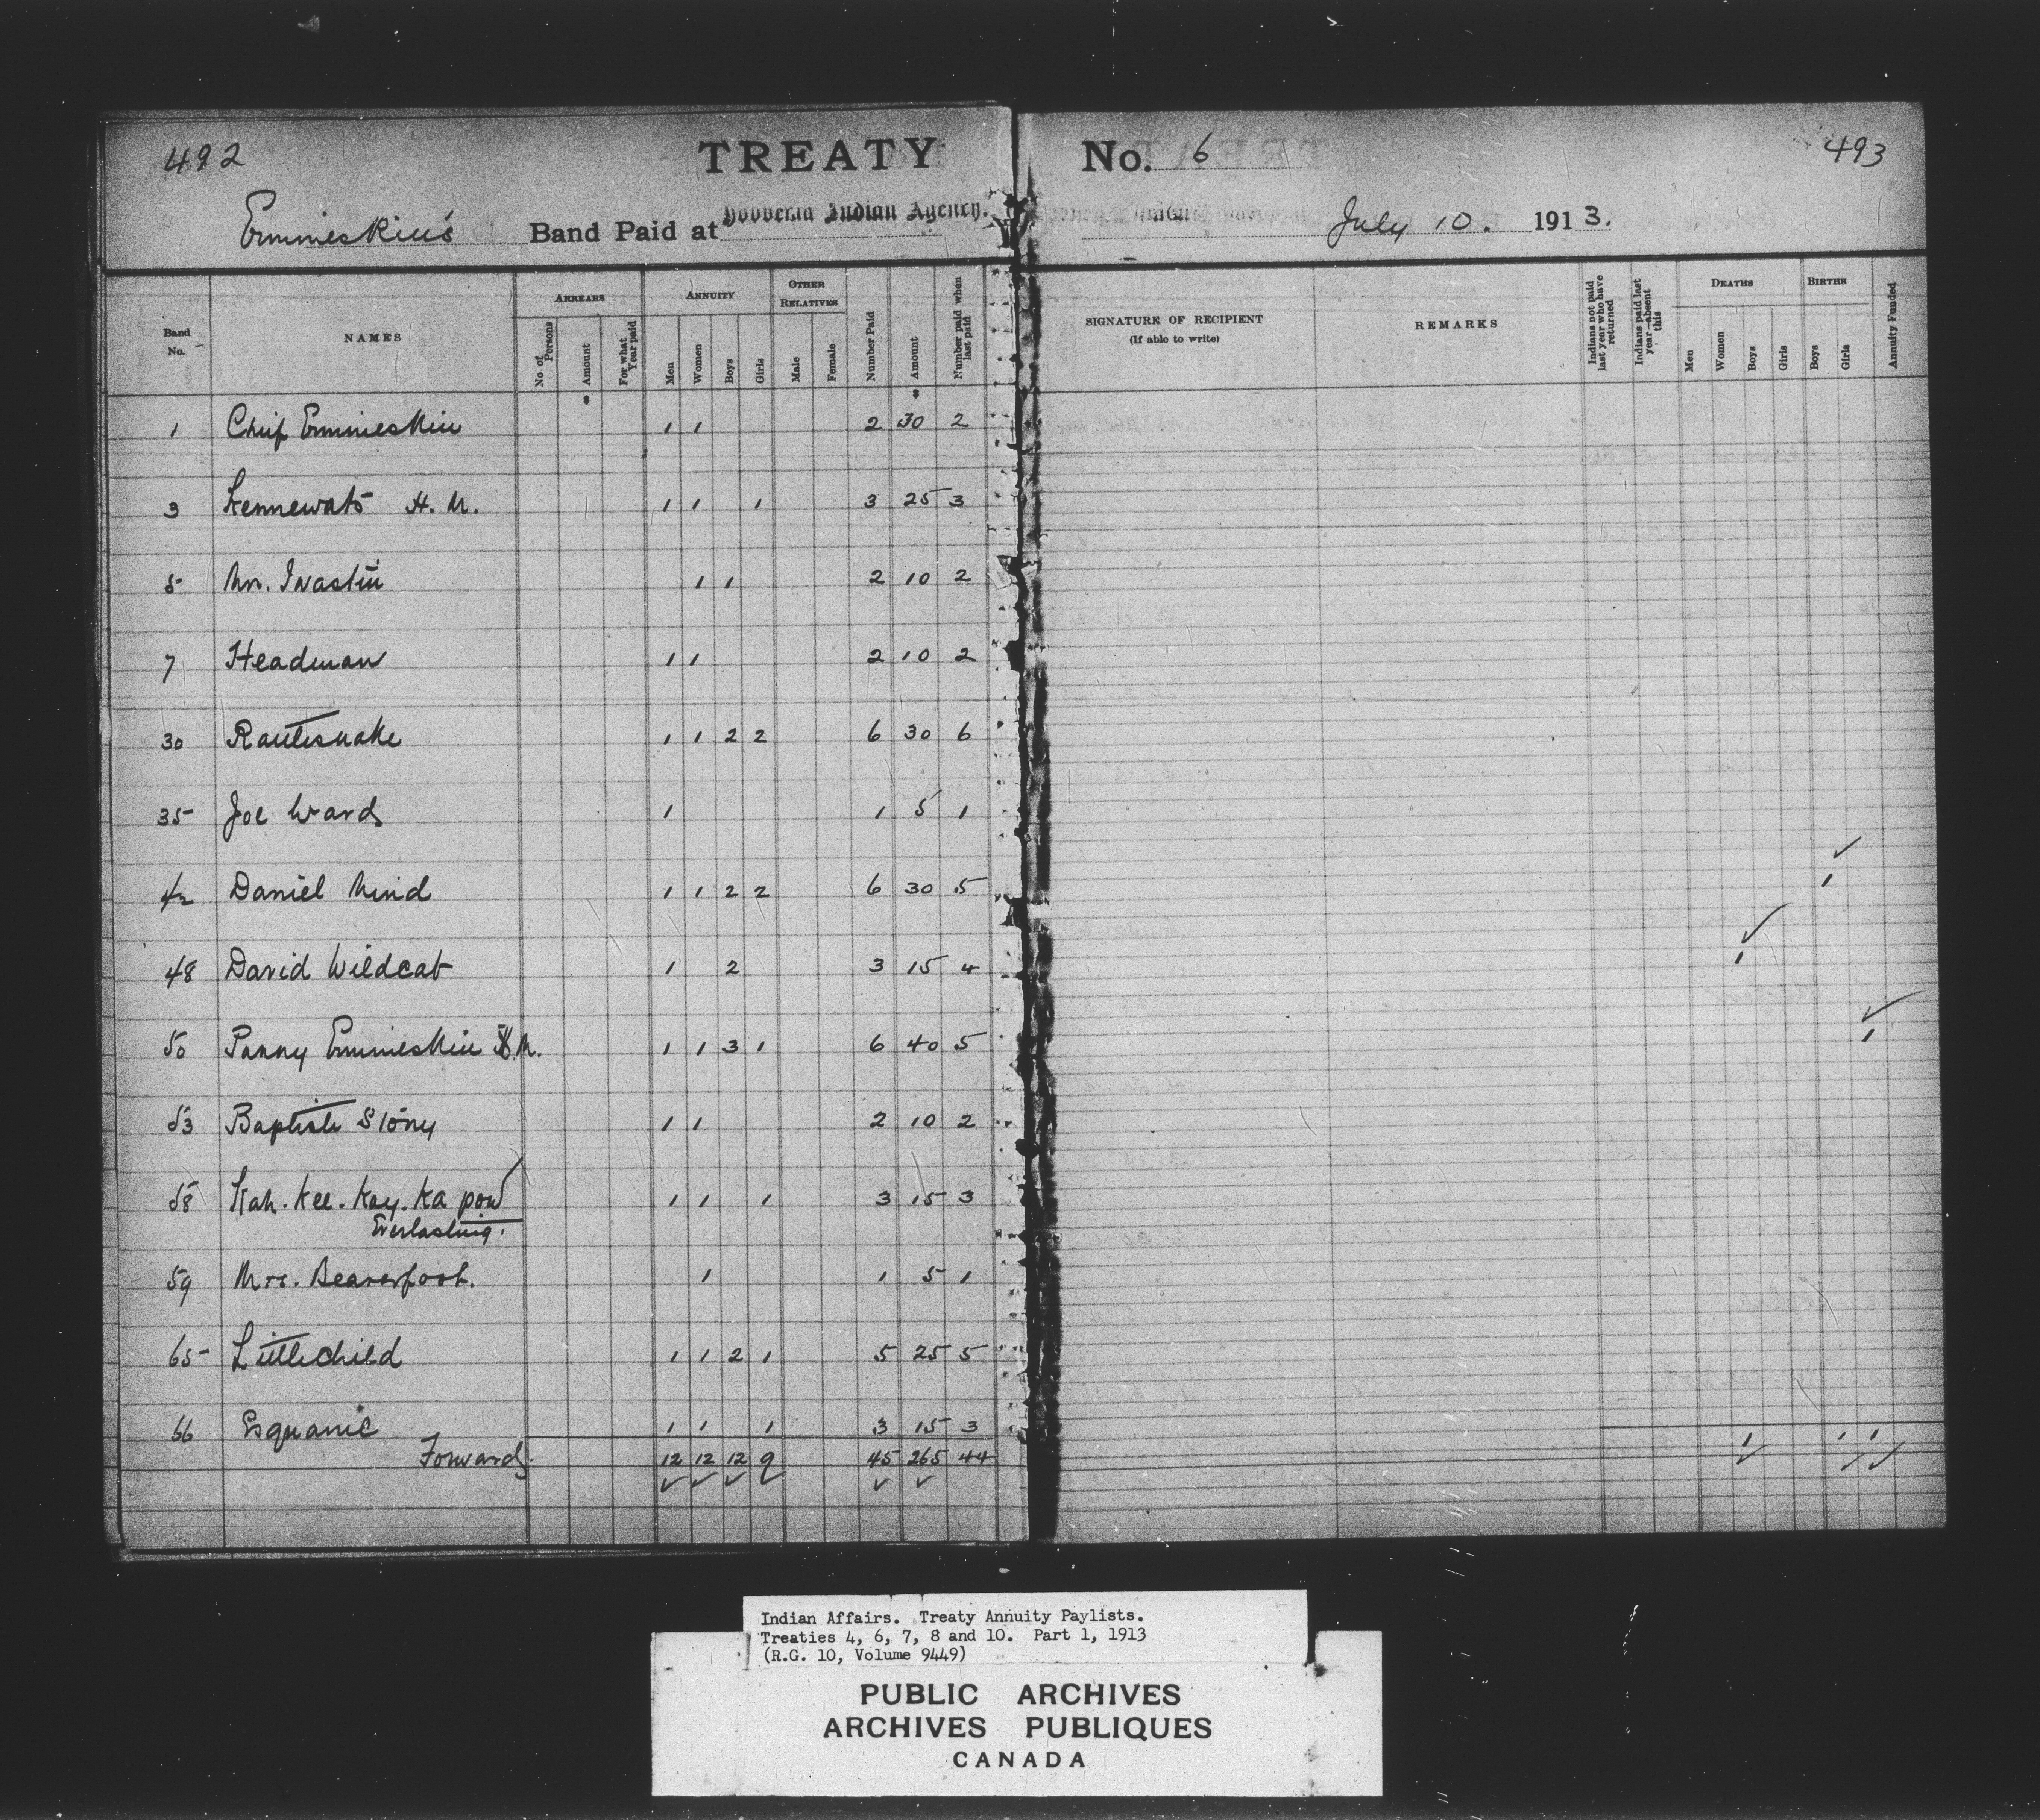 492
TREATY No. 6
493
Ermineskin's Band Paid at Hobbema Indian Agency. July 10. 1913.
Band No.
NAMES
ARREARS
No of Persons
Amount
For what Year paid
ANNUITY
Men
Women
Boys
Girls
OTHER RELATIVES
Male
Female
Number Paid
Amount
Number paid when last paid
SIGNATURE OF RECIPIENT
(If able to write)
REMARKS
Indians not paid last year who have returned
Indians paid last year—absent this
DEATHS
Men
Women
Boys
Girls
BIRTHS
Boys
Girls
Annuity Funded
1 Chief Ermineskin 1 1 2 30 2
3 H. M. 1 1 1 3 25 3
5 1 1 2 10 2
7 Headman 1 1 2 10 2
30 Rattlesnake 1 1 2 2 6 30 6
35 Joe Ward 1 1 5 1
42 Daniel 1 1 2 2 6 30 5 1
48 David Wildcat 1 2 3 15 4 1
50 Ermineskin H.M. 1 1 3 1 6 40 5 1
53 Baptiste Stony 1 1 2 10 2
58 Kah. Kee. Kay. Ka pow 1 1 1 3 15 3
Everlasting.
59 Mrs. Beaverfoot. 1 1 5 1
65 Littlechild 1 1 2 1 5 25 5
66 Esquanic 1 1 1 3 15 3
Forward 12 12 12 9 45 265 44 1 1 1
Indian Affairs. Treaty Annuity Paylists.
Treaties 4, 6, 7, 8 and 10. Part 1, 1913
(R.G. 10, Volume 9449)
PUBLIC ARCHIVES
ARCHIVES PUBLIQUES
CANADA